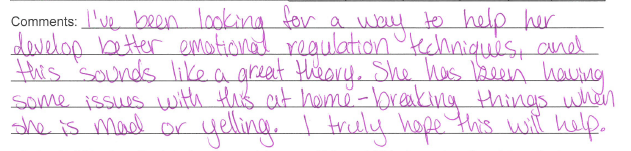 Comments: I've been looking for a way to help her
develop better emotional regulation techniques, and
this sounds like a great theory. She has been having
some issues with this at home - breaking things when
she is mad or yelling. I truly hope this will help.